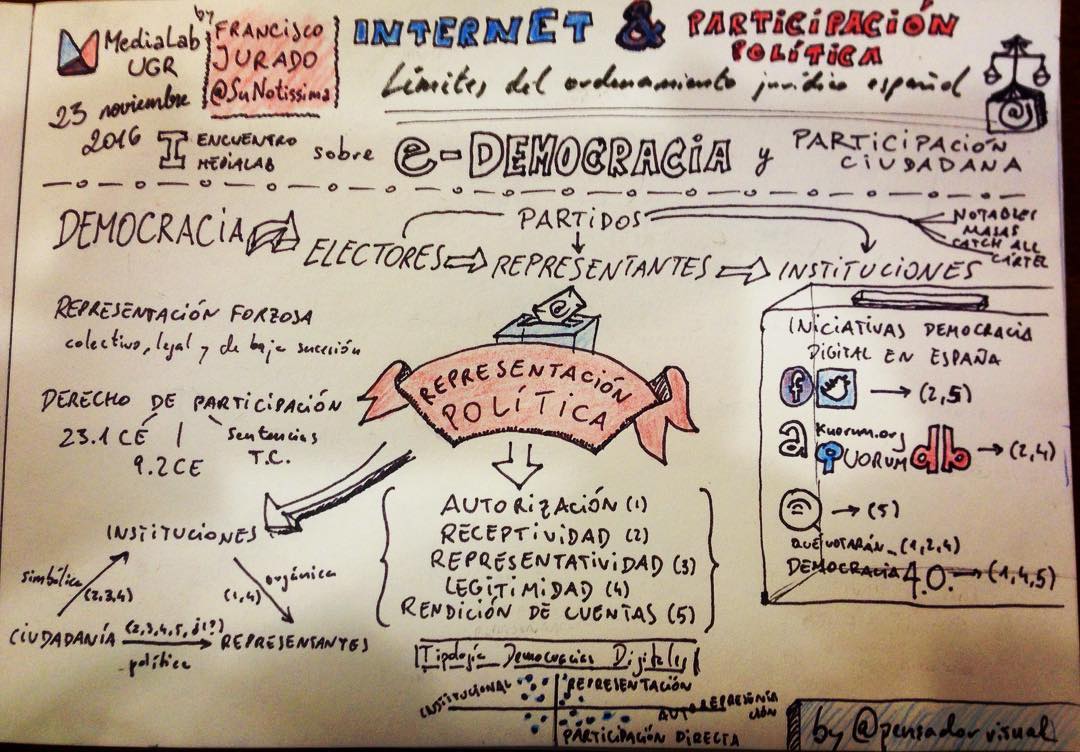 MediaLab
UGR
23 noviembre
2016
by
FRANCISCO
JURADO
@SuNotissima
INTERNET & PARTICIPACIÓN
POLÍTICA
Límites del ordenamiento jurídico español
I ENCUENTRO
MEDIALAB
sobre e-DEMOCRACIA y PARTICIPACIÓN
CIUDADANA
DEMOCRACIA
PARTIDOS
NOTABLES
MASAS
CATCH ALL
CÁRTEL
ELECTORES REPRESENTANTES INSTITUCIONES
REPRESENTACIÓN FORZOSA
colectivo, legal y de baja sucesión
DERECHO DE PARTICIPACIÓN
23.1 CE
9.2 CE
sentencias
T.C.
@
REPRESENTACIÓN
POLÍTICA
AUTORIZACIÓN (1)
RECEPTIVIDAD (2)
REPRESENTATIVIDAD (3)
LEGITIMIDAD (4)
RENDICIÓN DE CUENTAS (5)
INSTITUCIONES
simbólica
(2,3,4)
orgánica
(1,4)
CIUDADANÍA
(2,3,4,5, ¿1?)
política
REPRESENTANTES
INICIATIVAS DEMOCRACIA
DIGITAL EN ESPAÑA
f
(2,5)
a
Kuorum.org
QUORUM
db
(2,4)
(5)
QUE VOTARÁN (1,2,4)
DEMOCRACIA 4.0. (1,4,5)
Tipología Democracias Digitales
INSTITUCIONAL
REPRESENTACIÓN
PARTICIPACIÓN DIRECTA
by @pensadorvisual